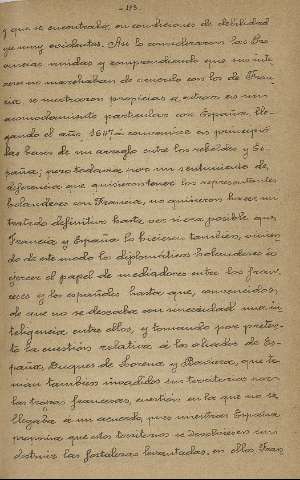 - 113 -
y que se encontraba, en condiciones de debilidad
muy evidentes. Así lo consideraron las Pro-
vincias unidas y comprendiendo que sus inte-
reses no marchaban de acuerdo con los de Fran-
cia, se mostraron propicias a entrar en un
acomodamiento particular con España, lle-
gando el año, 1647 a convenirse en principio
las bases de un arreglo entre los rebeldes y Es-
paña; pero todavía por un sentimiento de
diferencia que quisieron tener los representantes
holandeses con Francia, no quisieron hacer un
tratado definitivo hasta ver si era posible que
Francia y España lo hicieran tambien, vinien-
do de este modo los diplomáticos holandeses a
ejercer el papel de mediadores entre los fran-
ceses y los españoles hasta que, convencidos,
de que no se deseaba con sinceridad una in-
teligencia entre ellos, y tomando por pretex-
to la cuestión relativa á los aliados de Es-
paña, Duques de Lorena y Baviera, que te-
nian tambien invadidos sus territorios por
las tropas francesas, cuestión en la que no se
llegaba á un acuerdo, pues mientras España
proponía que estos territorios se devolviesen sin
destruir las fortalezas levantadas, en ellos, Fran